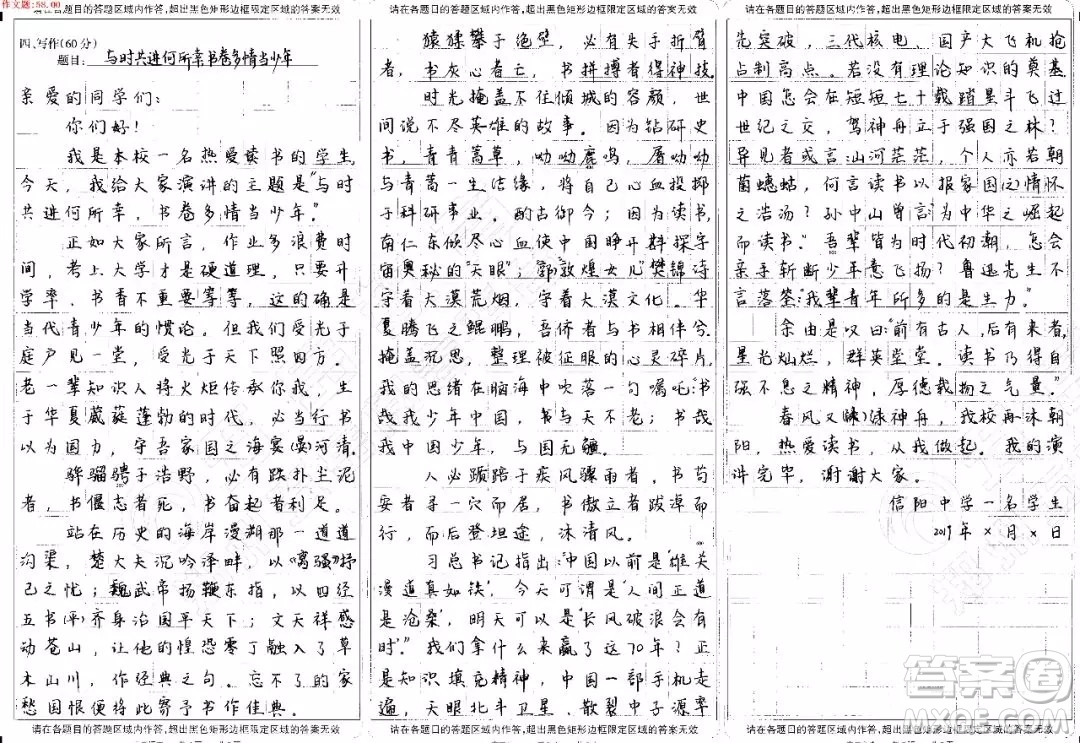 作文题:58.00
请在各题目的答题区域内作答,超出黑色矩形边框限定区域的答案无效
四、写作(60分)
题目: 与时共进何所幸书卷多情当少年
亲爱的同学们:
你们好!
我是本校一名热爱读书的学生,
今天,我给大家演讲的主题是"与时
共进何所幸,书卷多情当少年。"
正如大家所言,作业多浪费时
间,考上大学才是硬道理,只要升
学率,书看不重要等等,这的确是
当代青少年的惯论。但我们受光于
庭户见一堂,受光于天下照四方。
老一辈知识人将火炬传承你我,生
于华夏葳蕤蓬勃的时代,必当行书
以为国力,守吾家国之海宴(晏)河清。
骅骝骋于浩野,必有跌扑尘泥
者,书偃志者死,书奋起者利足。
站在历史的海岸漫溯那一道道
沟渠,楚大夫沉吟泽畔,以《离骚》抒
己之忧;魏武帝扬鞭东指,以四经
五书(平)齐身治国平天下;文天祥感
动苍山,让他的惶恐零丁融入了草
木山川,作经典之句。忘不了的家
愁国恨便将此寄予书作佳典。
请在各题目的答题区域内作答,超出黑色矩形边框限定区域的答案无效
请在各题目的答题区域内作答,超出黑色矩形边框限定区域的答案无效
猿猱攀于绝壁,必有失手折臂
者,书灰心者亡,书拼搏者得神技。
时光掩盖不住倾城的容颜,世
间说不尽英雄的故事。因为钻研史
书,青青蒿草,呦呦鹿鸣,屠呦呦
与青蒿一生结缘,将自己心血投掷
于科研事业。酌古御今;因为读书,
南仁东倾尽心血使中国睁开斟探宇
宙奥秘的"天眼";"敦煌女儿"樊锦诗
守着大漠荒烟,守着大漠文化。华
夏腾飞之鲲鹏,吾侪者与书相伴兮。
掩盖沉思,整理被征服的心灵碎片,
我的思绪在脑海中吹落一句嘱咤:书
哉我少年中国,书与天不老;书哉
我中国少年,与国无疆。
人必踬踣于疾风骤雨者,书苟
安者寻一穴而居,书傲立者跋淖而
行,而后登坦途,沐清风。
习总书记指出:中国以前是'雄关
漫道真如铁',今天可谓是'人间正道
是沧桑',明天可以是'长风破浪会有
时'。"我们拿什么来赢了这70年?正
是知识填充精神,中国一部手机走
遍,天眼北斗卫星、散裂中子源率
请在各题目的答题区域内作答,超出黑色矩形边框限定区域的答案无效
请在各题目的答题区域内作答,超出黑色矩形边框限定区域的答案无效
先突破,三代核电、国产大飞机抢
占制高点。若没有理论知识的奠基,
中国怎会在短短七十载踏星斗飞过
世纪之交,驾神舟立于强国之林?
异见者或言:山河茫茫,个人亦若朝
菌蟪蛄,何言读书以报家国之情怀
之浩汤?孙中山曾言"为中华之崛起
而读书"。吾辈皆为时代初潮,怎会
亲手斩断少年意飞扬?鲁迅先生不
言落筌"我辈青年所多的是生力。"
余由是叹曰:"前有古人,后有来者,
星光灿烂,群英堂堂。读书乃得自
强不息之精神,厚德载物之气量。"
春风又绿神舟,我校再沐朝
阳,热爱读书,从我做起。我的演
讲完毕,谢谢大家。
信阳中学一名学生
2019年×月×日
请在各题目的答题区域内作答,超出黑色矩形边框限定区域的答案无效
答案圈
MXQE.COM